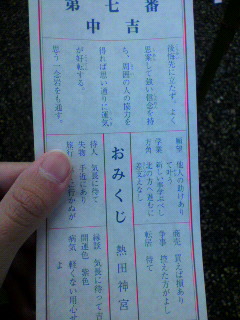 第七番
中吉
後悔先に立たず。よく
思案して強い信念を持
ち、周囲の人の協力を
得れば思い通りに運気
が好転する。
思う一念岩をも通す。
おみくじ
熱田神宮
願望 他人の助けあり
て叶う
学業 新しい事学ぶべし
方角 北の方へ進むに
差支えなし
商売 買えば損あり
争事 控えた方がよし
転居 待て
待人 気長に待て
失物 手近にあり
縁談 気長に待つて吉
開運色 紫色
病気 軽くない用心せ
よ